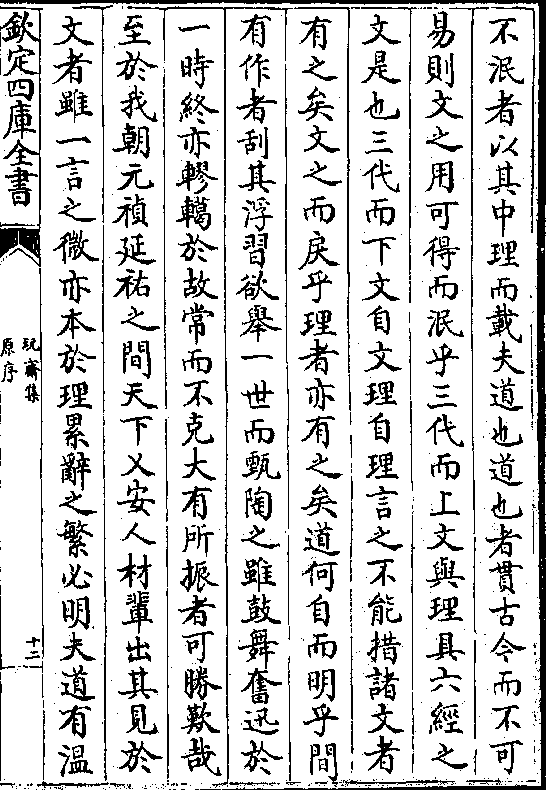 不泯者以其中理而載夫道也道也者貫古今而不可
易則文之用可得而泯乎三代而上文與理具六經之
文是也三代而下文自文理自理言之不能措諸文者
有之矣文之而戾乎理者亦有之矣道何自而明乎間
有作者刮其浮習欲舉一世而甄陶之雖鼓舞奮迅於
一時終亦轇轕於故常而不克大有所振者可勝歎哉
至於我朝元禎延祐之間天下乂安人材輩出其見於
文者雖一言之微亦本於理累辭之繁必明夫道有溫
欽定四庫全書
玩齋集
原序
十二